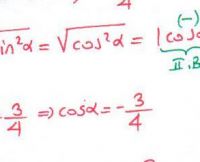 4
(-)
in²α = √cos²α = |cosα
II, B
-3/4 ⇒ cosα = -3/4